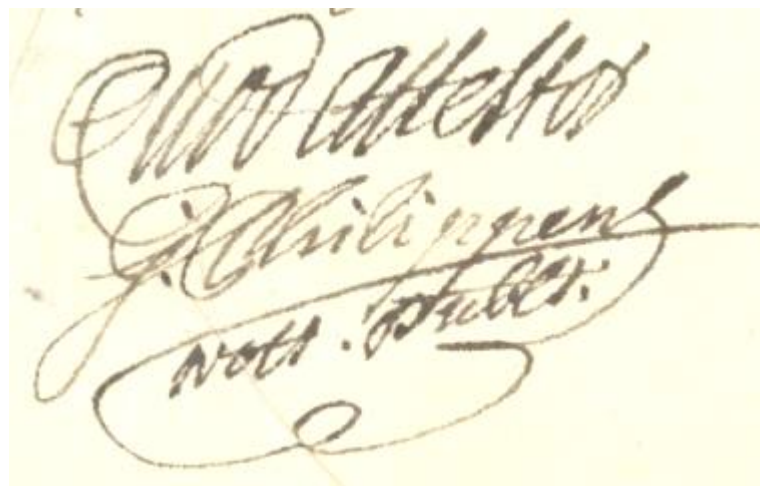 Quod Attestor
G. Philippens
Nott. Publ.